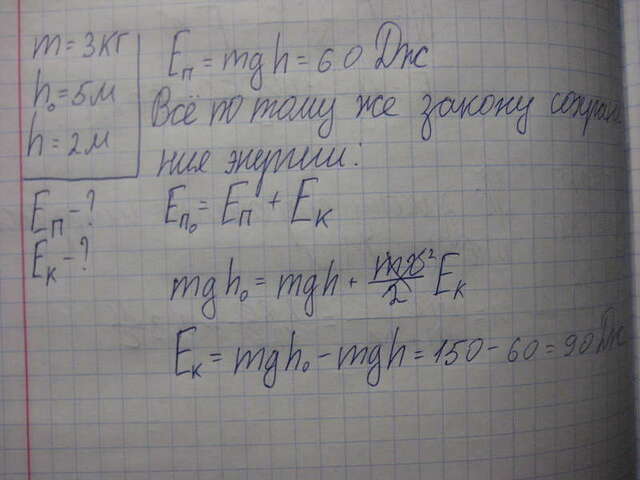 m = 3 кг
h₀ = 5 м
h = 2 м
Eп - ?
Eк - ?
Eп = mgh = 60 Дж
Всё по тому же закону сохране
ния энергии:
Eп₀ = Eп + Eк
mgh₀ = mgh + mv²/2 Eк
Eк = mgh₀ - mgh = 150 - 60 = 90 Дж